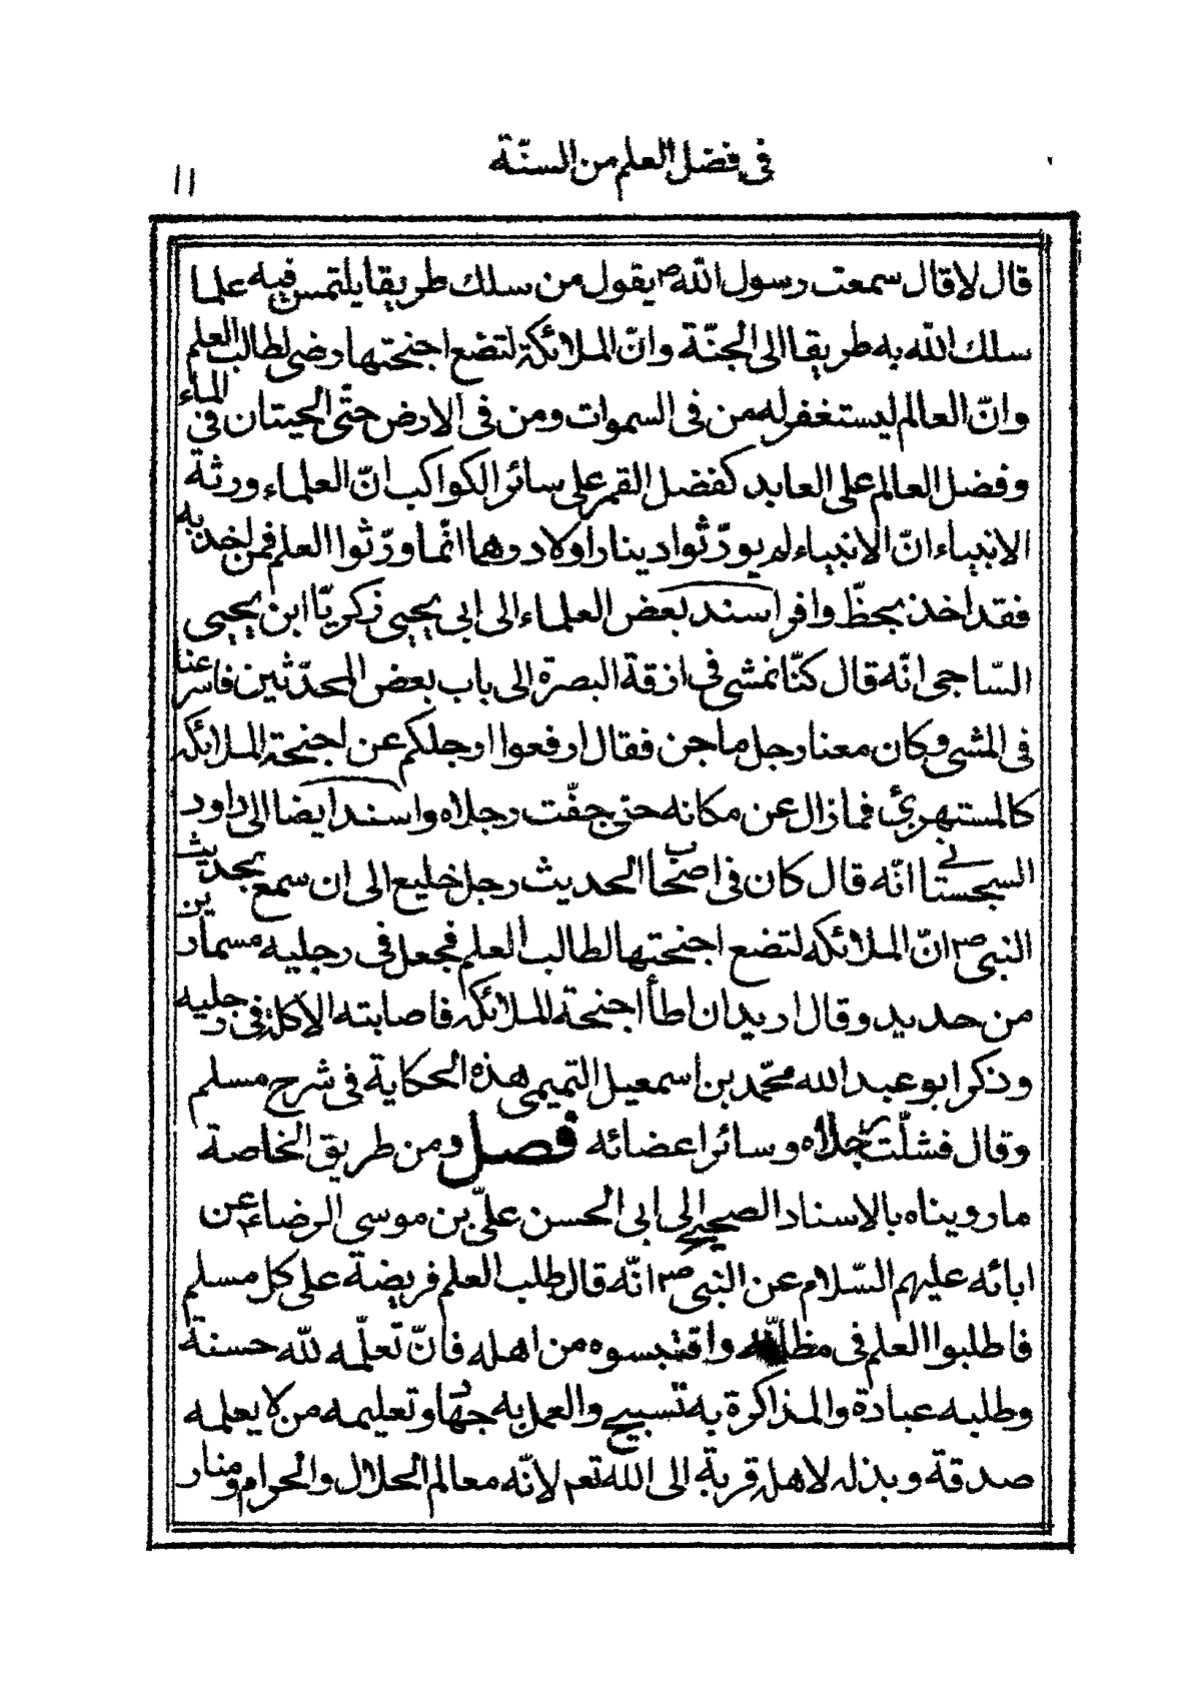 في فضل العلم من السنّة
١١
قال لا قال سمعت رسول اللّٰه ص يقول من سلك طريقا يلتمس فيه علما
سلك اللّٰه به طريقا الى الجنّة وانّ الملائكة لتضع اجنحتها رضى لطالب العلم
وانّ العالم ليستغفر له من فى السموات ومن فى الارض حتّى الحيتان فى الماء
وفضل العالم على العابد كفضل القمر على سائر الكواكب انّ العلماء ورثة
الانبياء انّ الانبياء لم يورّثوا دينارا ولا درهما انّما ورّثوا العلم فمن اخذ به
فقد اخذ بحظّ وافر اسند بعض العلماء الى ابى يحيى زكريّا ابن يحيى
السّاجى انّه قال كنّا نمشى فى ازقة البصرة الى باب بعض المحدّثين فاسرعنا
فى المشى وكان معنا رجل ماجن فقال ارفعوا ارجلكم عن اجنحة الملائكة
كالمستهزئ فما زال عن مكانه حتى جفّت رجلاه واسند ايضا الى داود
السجستانى انّه قال كان فى اصحاب الحديث رجل خليع الى ان سمع بحديث
النبى ص انّ الملائكة لتضع اجنحتها لطالب العلم فجعل فى رجليه مسمارين
من حديد وقال اريد ان اطأ اجنحة الملائكة فاصابته الاكلة فى رجليه
وذكر ابو عبد اللّٰه محمّد بن اسمعيل التميمى هذه الحكاية فى شرح مسلم
وقال فشلّت رجلاه وسائر اعضائه فصل ومن طريق الخاصة
ما رويناه بالاسناد الصحيح الى ابى الحسن علىّ بن موسى الرضاء عن
ابائه عليهم السّلام عن النبى ص انّه قال طلب العلم فريضة على كل مسلم
فاطلبوا العلم فى مظانّه واقتبسوه من اهله فانّ تعلّمه للّٰه حسنة
وطلبه عبادة والمذاكرة به تسبيح والعمل به جهاد وتعليمه من لا يعلمه
صدقة وبذله لاهله قربة الى اللّٰه تعم لانّه معالم الحلال والحرام ومنار